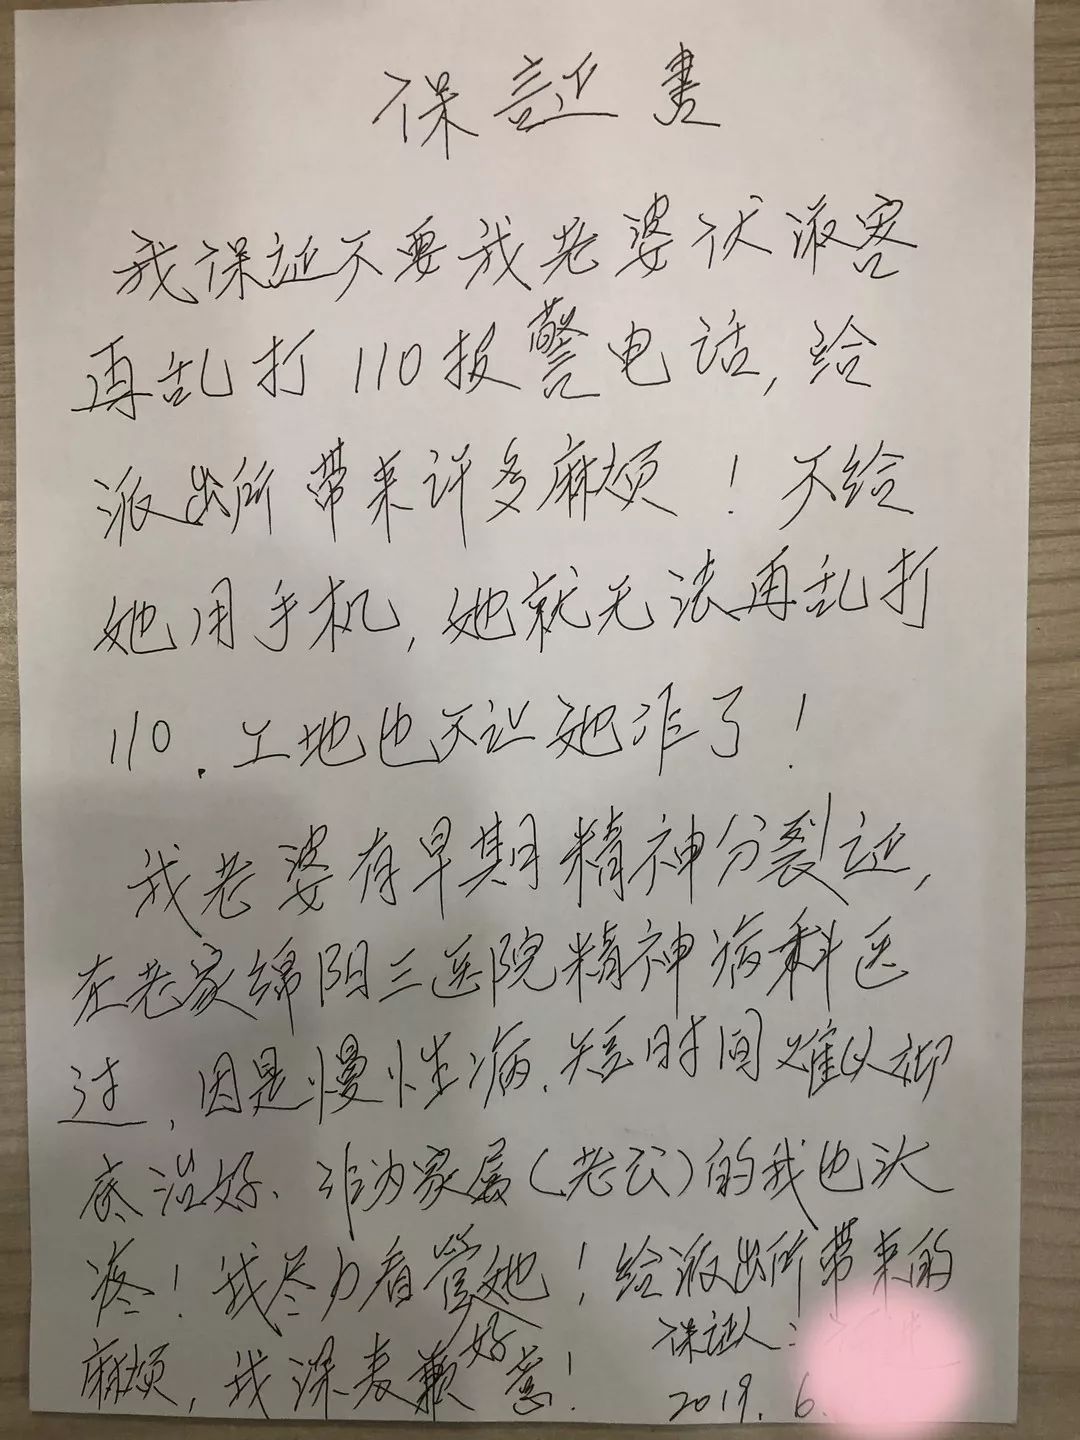 保証书
我保证不要我老婆伏淑容
再乱打110报警电话,给
派出所带来许多麻烦!不给
她用手机,她就无法再乱打
110.工地也不让她作了!
我老婆有早期精神分裂证,
在老家绵阳三医院精神病科医
过,因是慢性病.短时间难以彻
底治好、作为家属(老公)的我也头
疼!我尽力看管好她!给派出所带来的
麻烦,我深表歉意!
保证人:
2019.6.